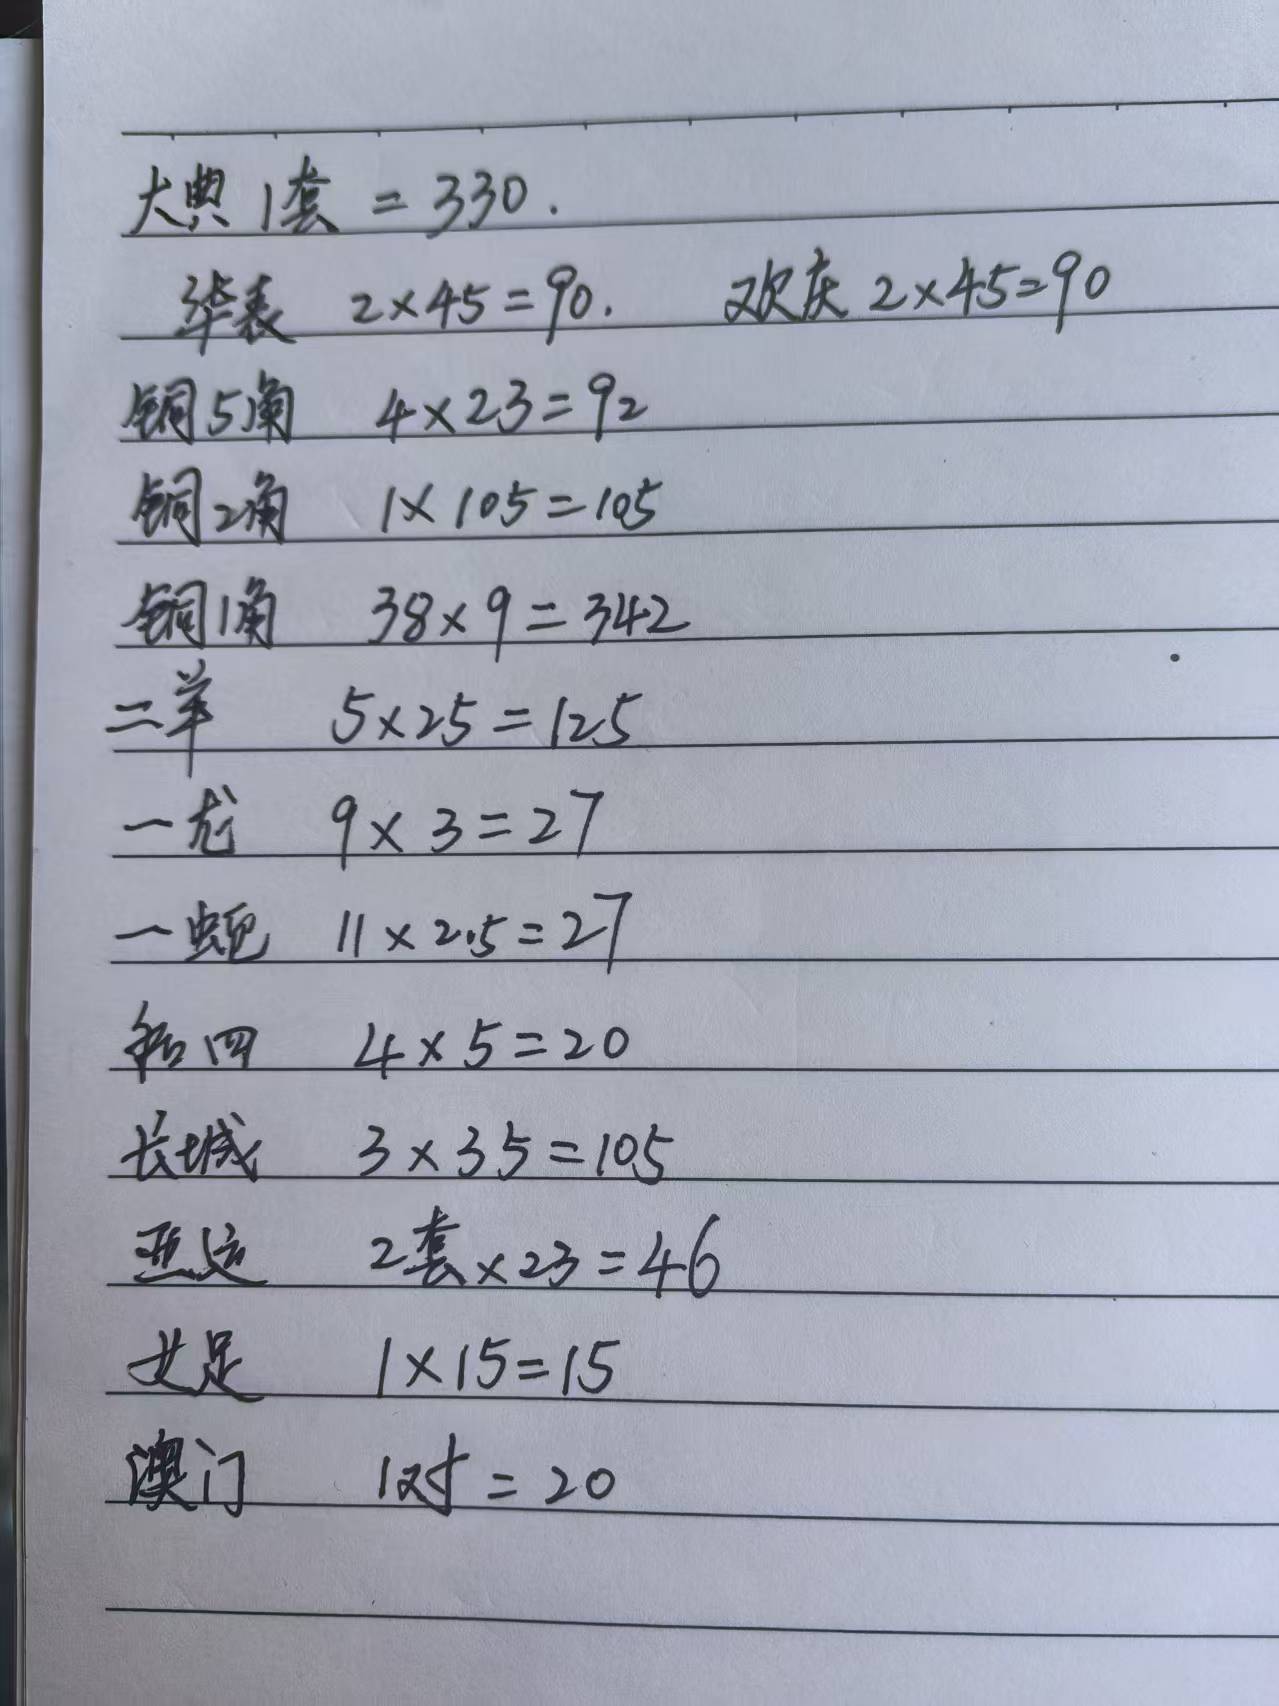 大典1套 = 330.
华表 2×45=90. 欢庆 2×45=90
铜5角 4×23=92
铜2角 1×105=105
铜1角 38×9=342
二羊 5×25=125
一龙 9×3=27
一蛇 11×2.5=27
和四 4×5=20
长城 3×35=105
亚运 2套×23=46
女足 1×15=15
澳门 1对=20